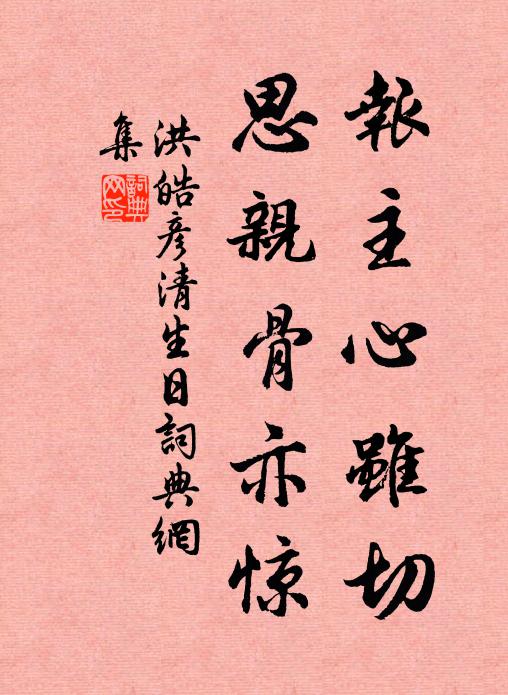 報主心雖切
思親骨亦惊
洪皓彦清生日詞典網
集
詞典网印